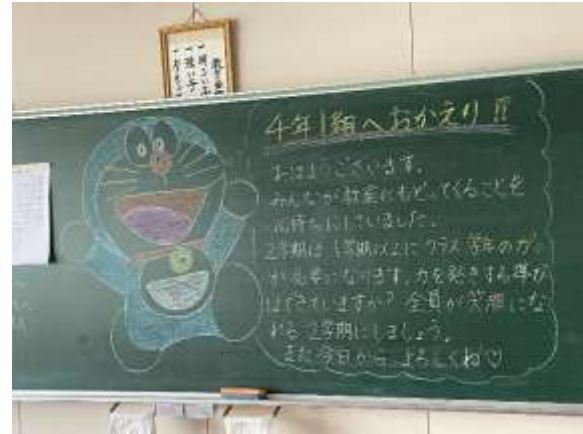 4年1組へおかえり!!
おはようございます。
みんなが教室にもどってくることを
心待ちにしていました。
2学期は1学期以上にクラス学年の力
が必要になります。力を発きする準び
はできていますか？全員が笑顔にな
れる2学期にしましょう。
また今日から、よろしくね♡